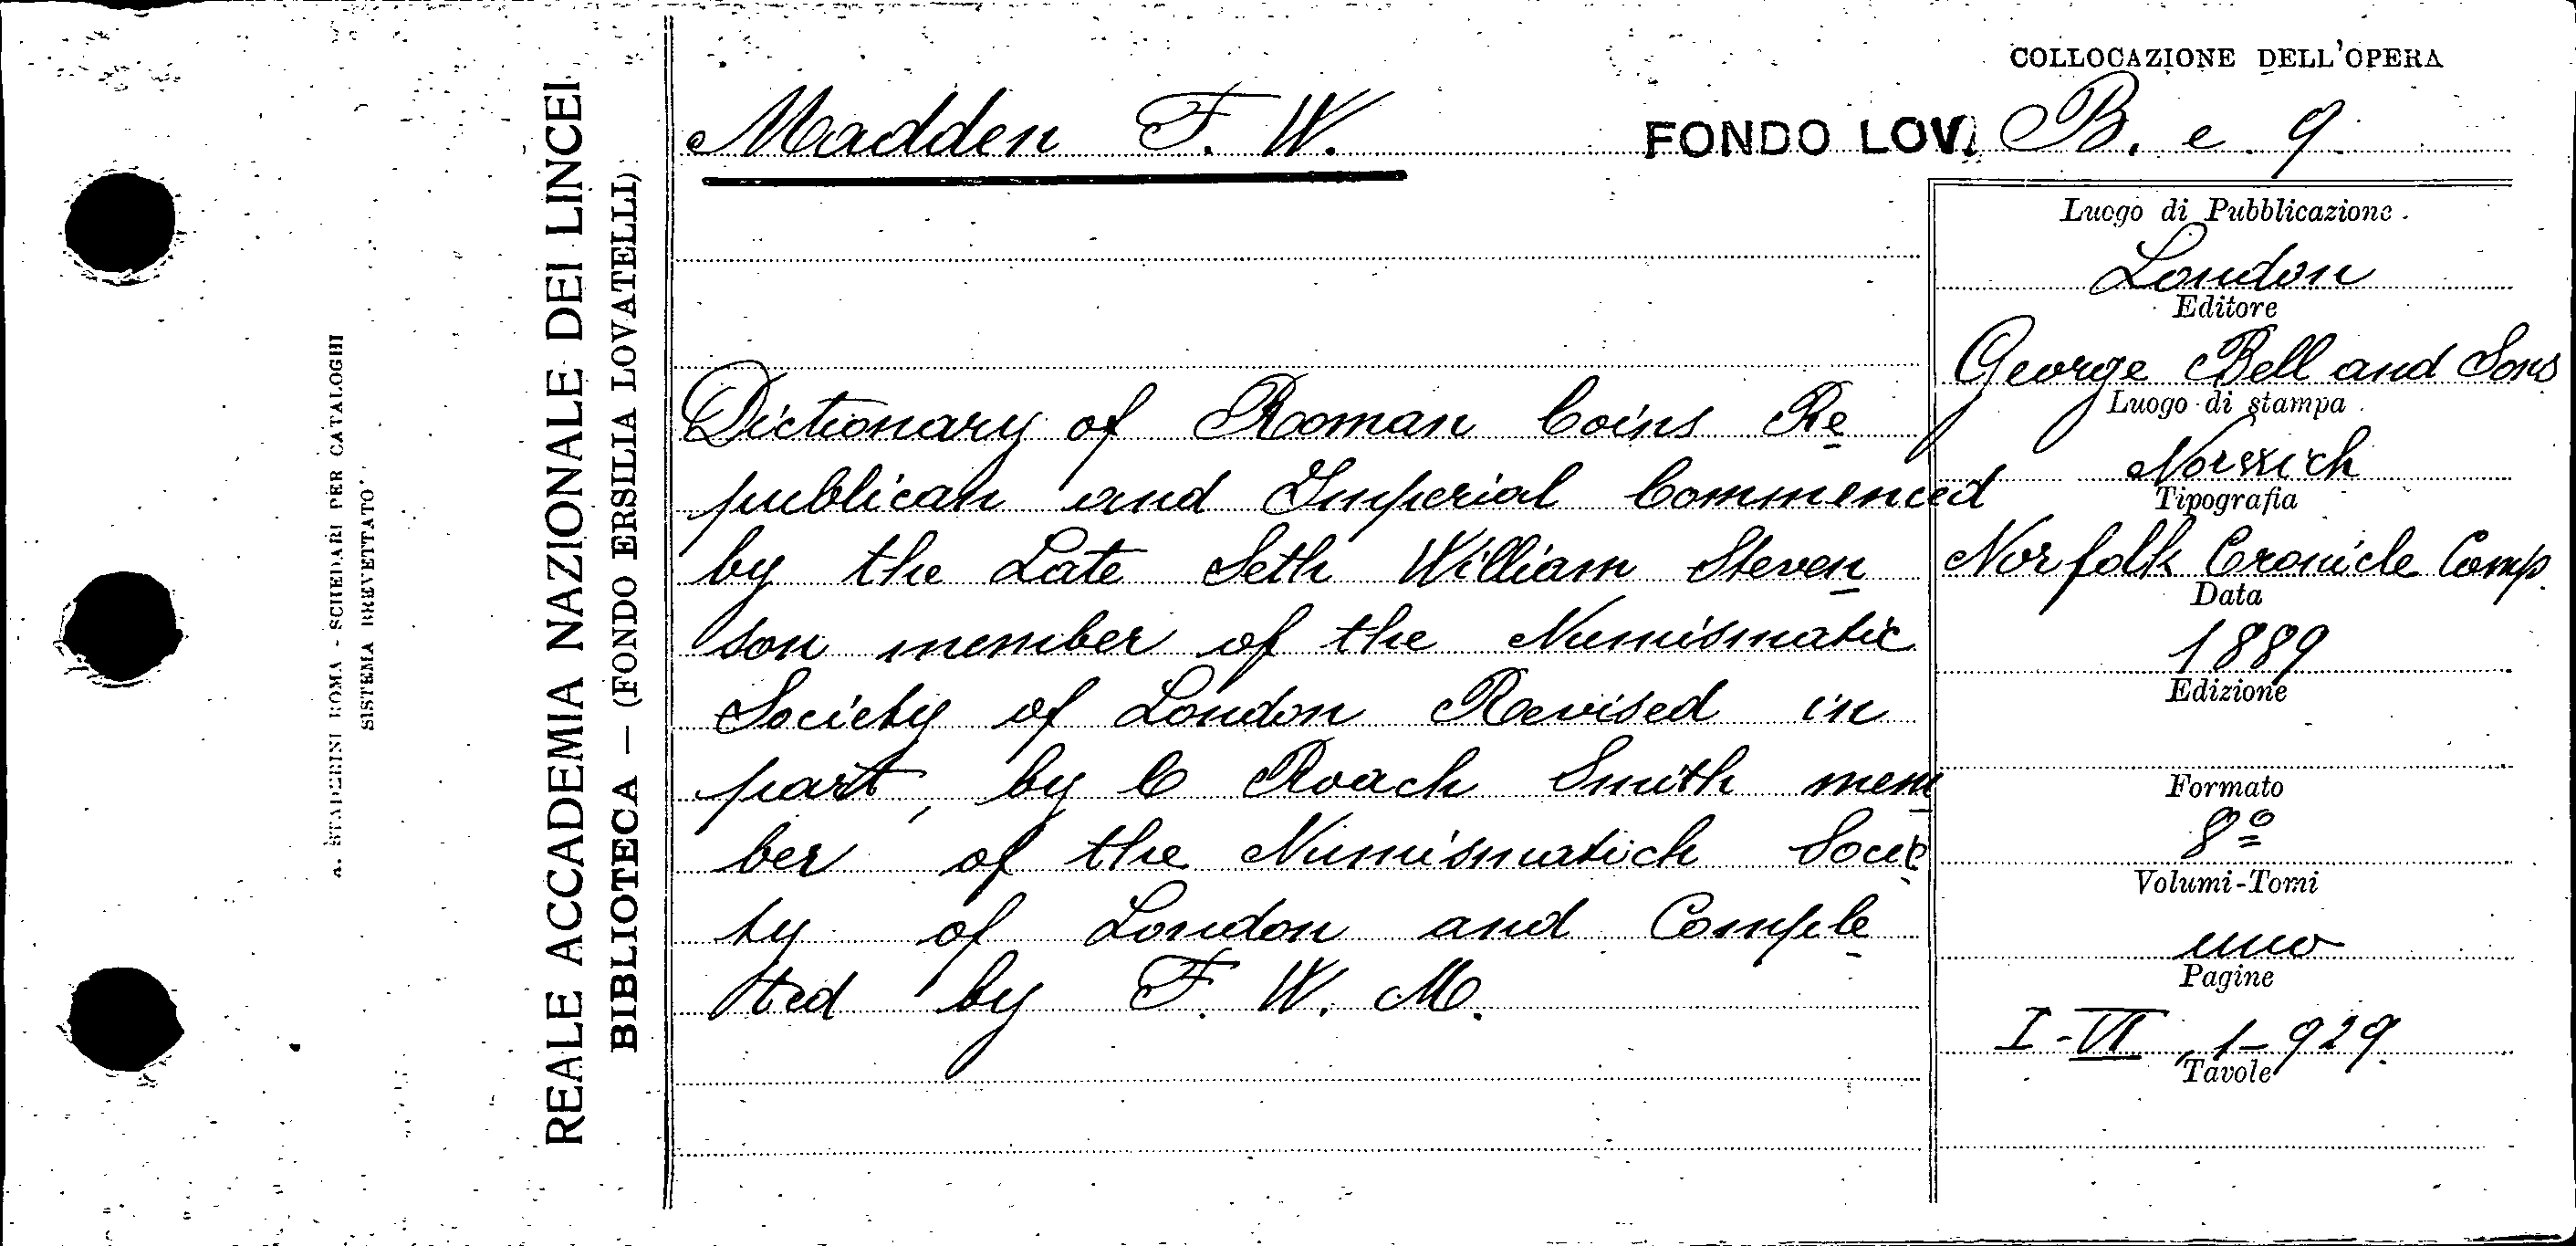 a. STADERINI ROMA - SCHEDARI PER CATALOGHI
SISTEMA BREVETTATO
REALE ACCADEMIA NAZIONALE DEI LINCEI
BIBLIOTECA — (FONDO ERSILIA LOVATELLI)
COLLOCAZIONE DELL'OPERA
Madden F. W.
FONDO LOV. B. e. 9.
Dictionary of Roman Coins Re
publican and Imperial Commenced
by the Late Seth William Steven
son member of the Numismatic
Society of London Revised in
part, by C Roach Smith mem
ber of the Numismatich Socie
ty of London and Comple
ted by F. W. M.
Luogo di Pubblicazione.
London
Editore
George Bell and Sons
Luogo di stampa
Norwich
Tipografia
Norfolk Cronicle Comp.
Data
1889
Edizione
Formato
8º
Volumi-Tomi
uno
Pagine
I-VI, 1-929.
Tavole